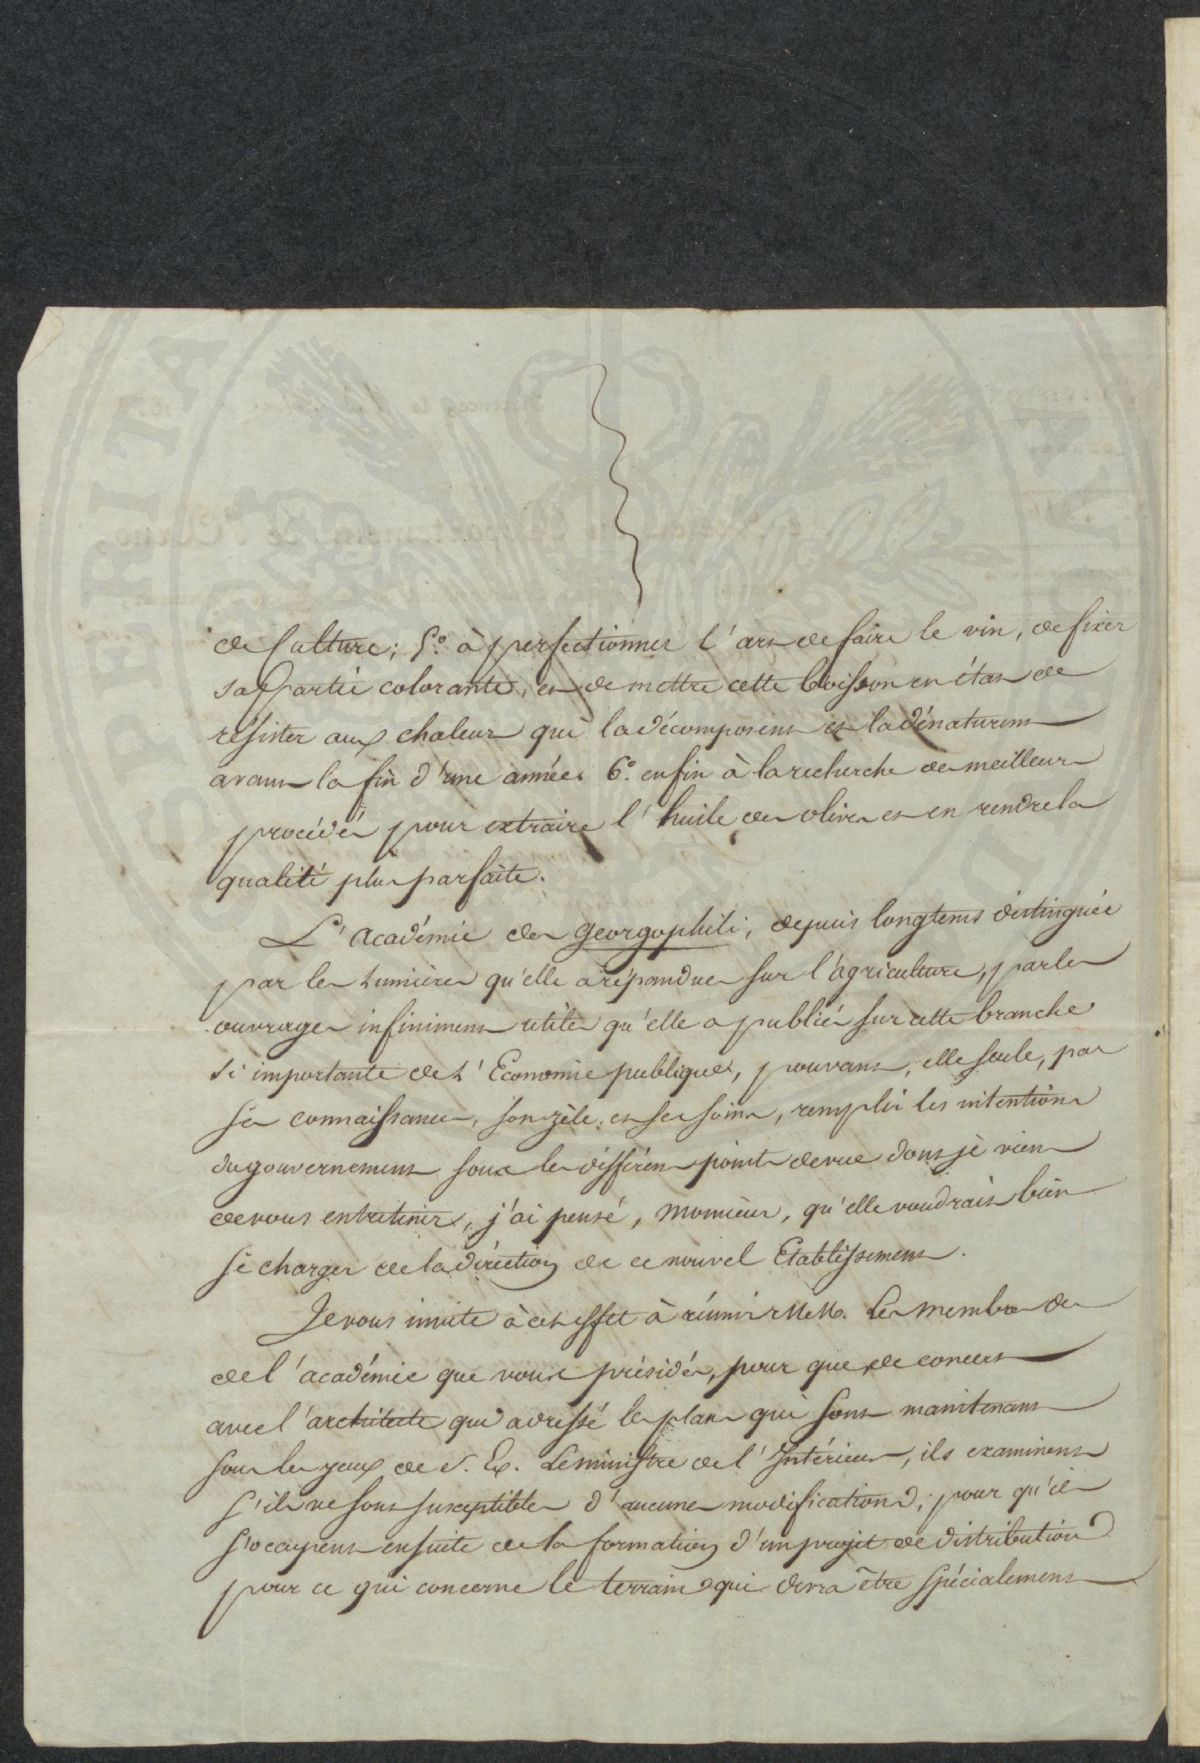 de Culture; 5.° à perfectionner l'art de faire le vin, de fixer
sa partie colorante, et de mettre cette boisson en état de
résister aux chaleurs qui la décomposent et la dénaturent
avant la fin d'une année. 6.° enfin à la recherche des meilleurs
procédés pour extraire l'huile des olives et en rendre la
qualité plus parfaite.
L'académie des georgophili, depuis longtems distinguée
par les Lumières qu'elle a répandues sur l'agriculture, par les
ouvrages infiniment utiles qu'elle a publiés sur cette branche
si importante de L'Economie publique, pouvant, elle seule, par
ses connaissances, son zèle, et ses soins, remplir les intentions
du gouvernement sous les différens points de vue dont je viens
de vous entretenir, j'ai pensé, Monsieur, qu'elle voudrait bien
se charger de la direction de ce nouvel Etablissement.
Je vous invite à cet effet à réunir MM. Les Membres de
de l'académie que vous présidés, pour que de concert
avec l'architecte qui a dressé les plans qui sont maintenant
sous les yeux de S. Ex. Le Ministre de l'Intérieur, ils examinent
s'ils ne sont susceptibles d'aucunes modifications; pour qu'ils
s'occupent ensuite de la formation d'un projet de distribution
pour ce qui concerne le terrain qui devra être spécialement
PERITA